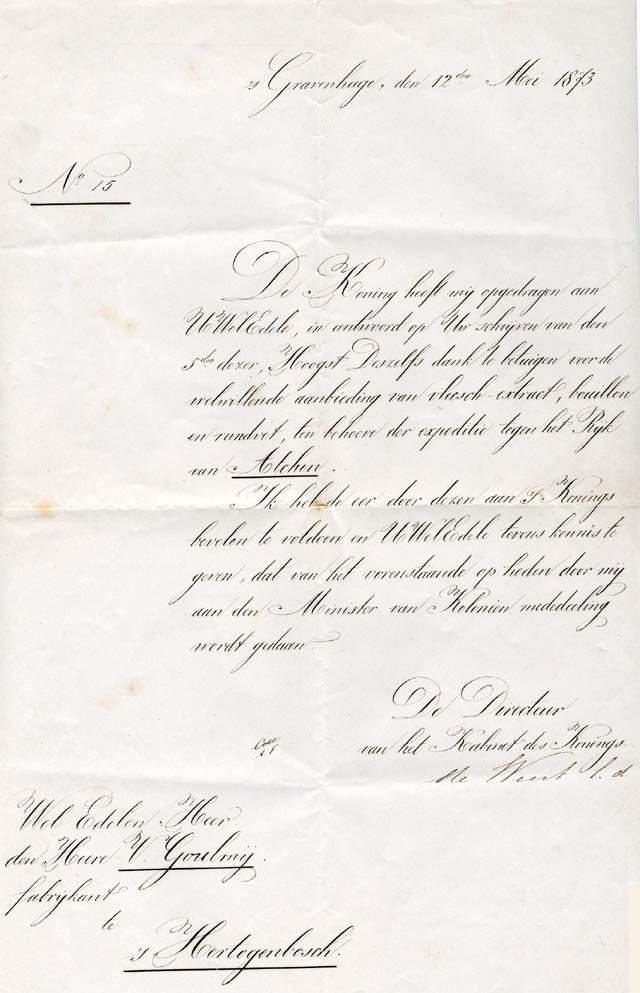 's Gravenhage, den 12den Mei 1873
No 15
De Koning heeft mij opgedragen aan
UWelEdele, in antwoord op Uw schrijven van den
5den dezer, Hoogst Deszelfs dank te betuigen voor de
welwillende aanbieding van vleesch-extract, bouillon
en rundvet, ten behoeve der expeditie tegen het Ryk
van Atchin.
Ik heb de eer door dezen aan 's Konings
bevelen te voldoen en UWelEdele tevens kennis te
geven, dat van het vorenstaande op heden door mij
aan den Minister van Kolonien mededeeling
wordt gedaan.
De Directeur
van het Kabinet des Konings
Wel Edelen Heer
den Heere V. Goulmij.
fabrijkant
te
's Hertogenbosch.